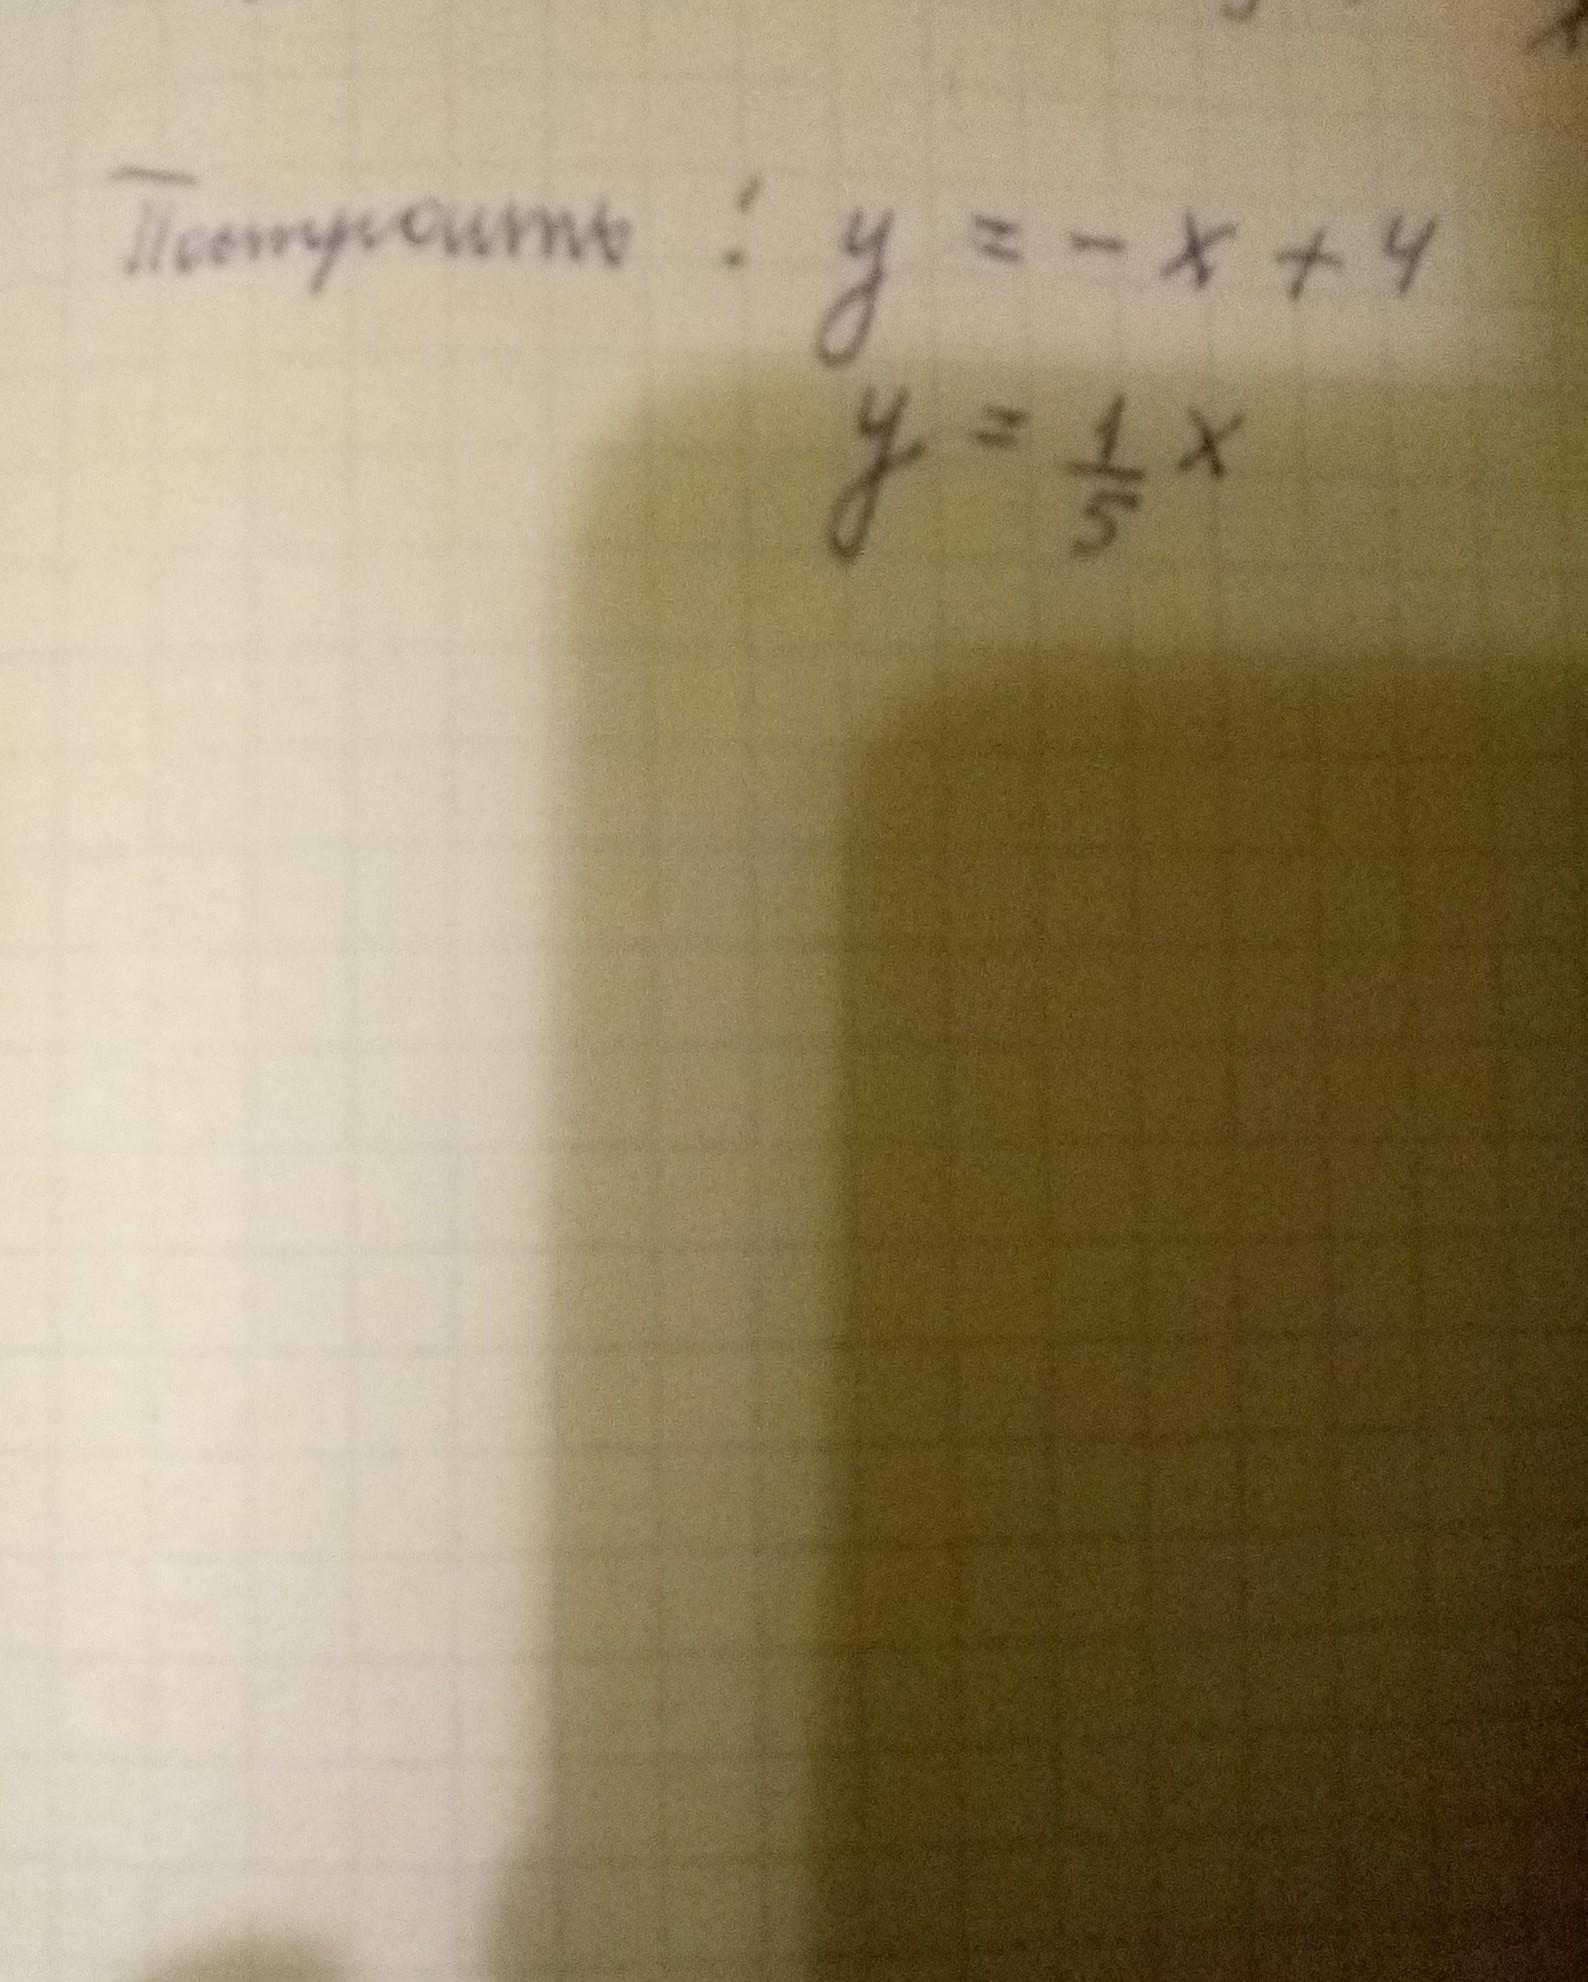 Построить : y = - x + 4
y = \frac{1}{5} x